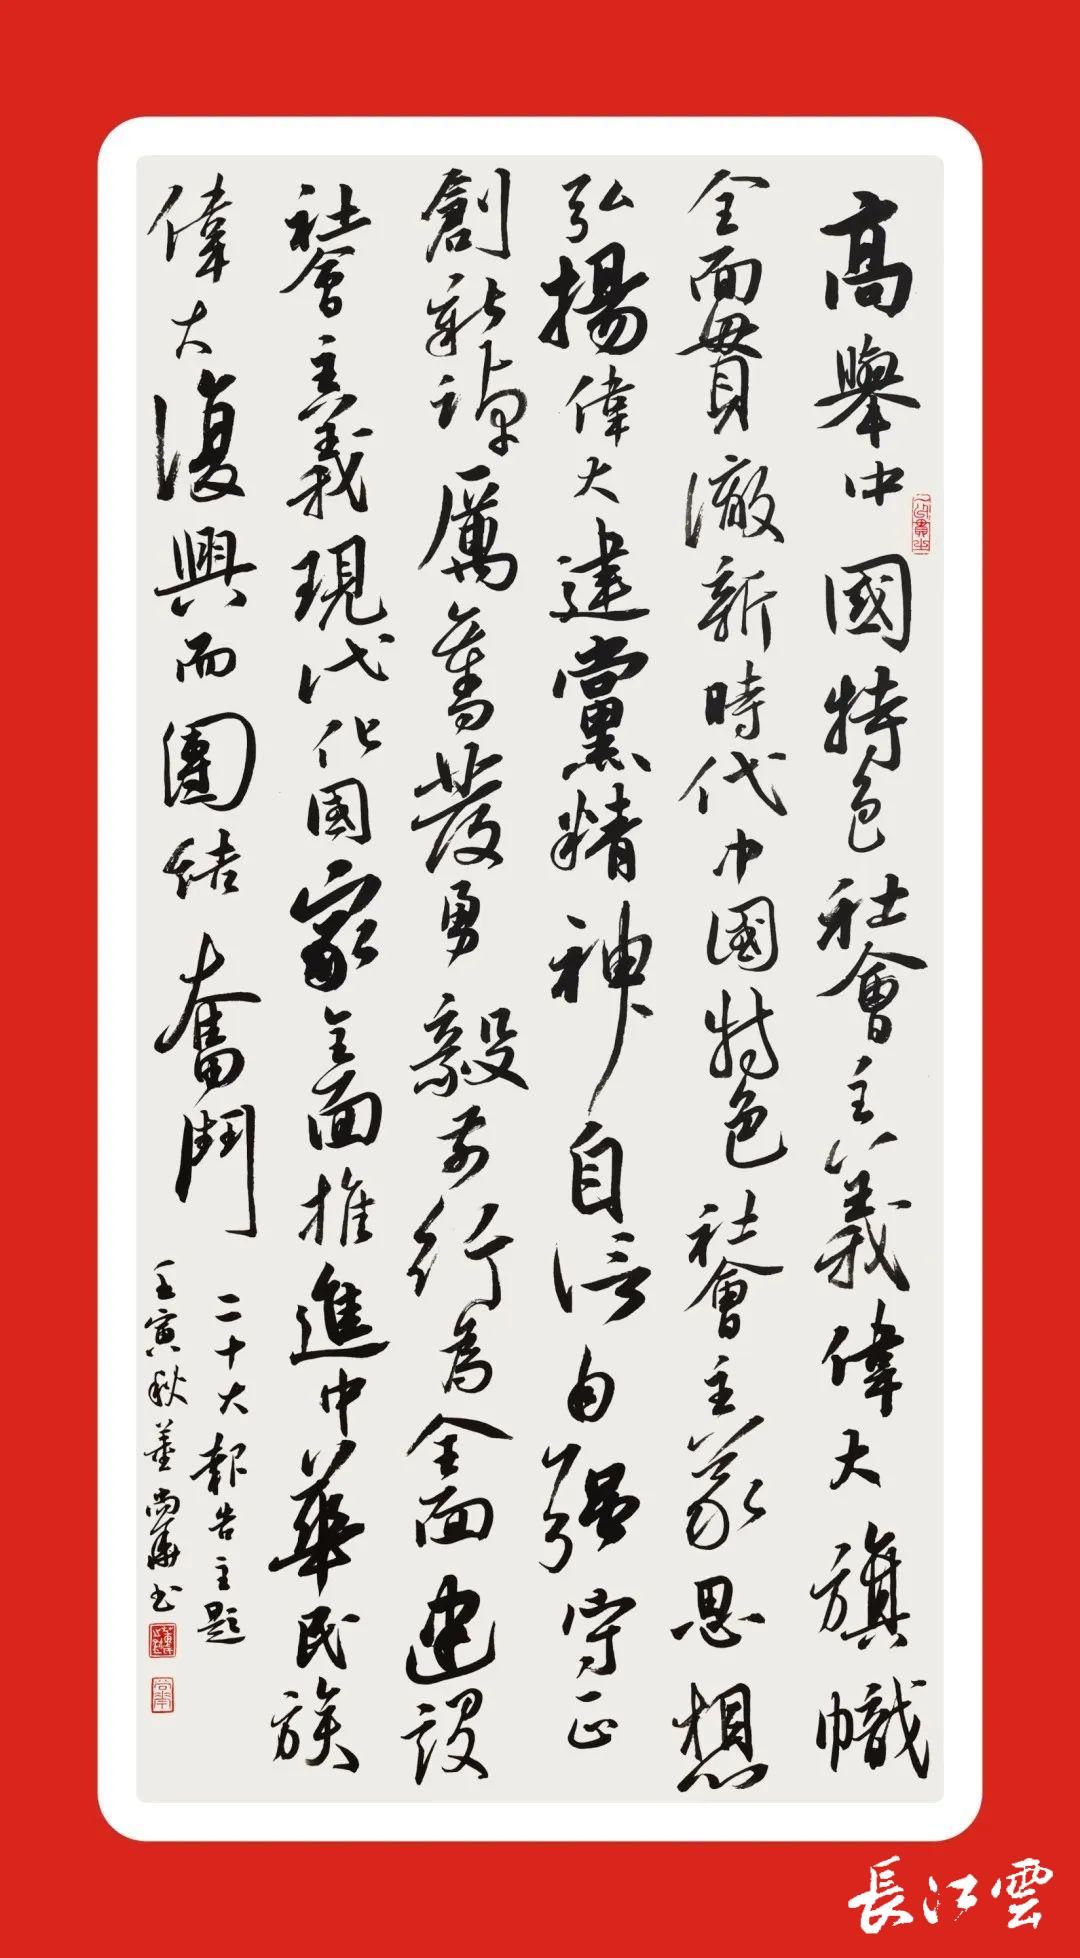 高舉中國特色社會主義偉大旗幟
全面貫徹新時代中國特色社會主義思想
弘揚偉大建黨精神自信自強守正
創新踔厲奮發勇毅前行為全面建設
社會主義現代化國家全面推進中華民族
偉大復興而團結奮鬥
二十大報告主題
壬寅秋董尚華书
長江雲